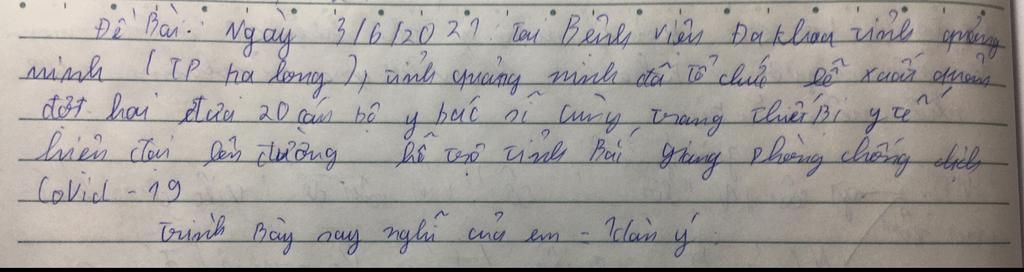 Đề Bài: Ngày 3/6/2021 tại Bệnh viện Đa khoa tỉnh quảng
ninh (TP hạ long), tỉnh quảng ninh đã tổ chức lễ xuất quân
đợt hai đưa 20 cán bộ y bác sĩ cùng trang thiết Bị y tế
hiện đại lên đường hỗ trợ tỉnh Bắc giang phòng chống dịch
Covid - 19
Trình Bày suy nghĩ của em - dàn ý